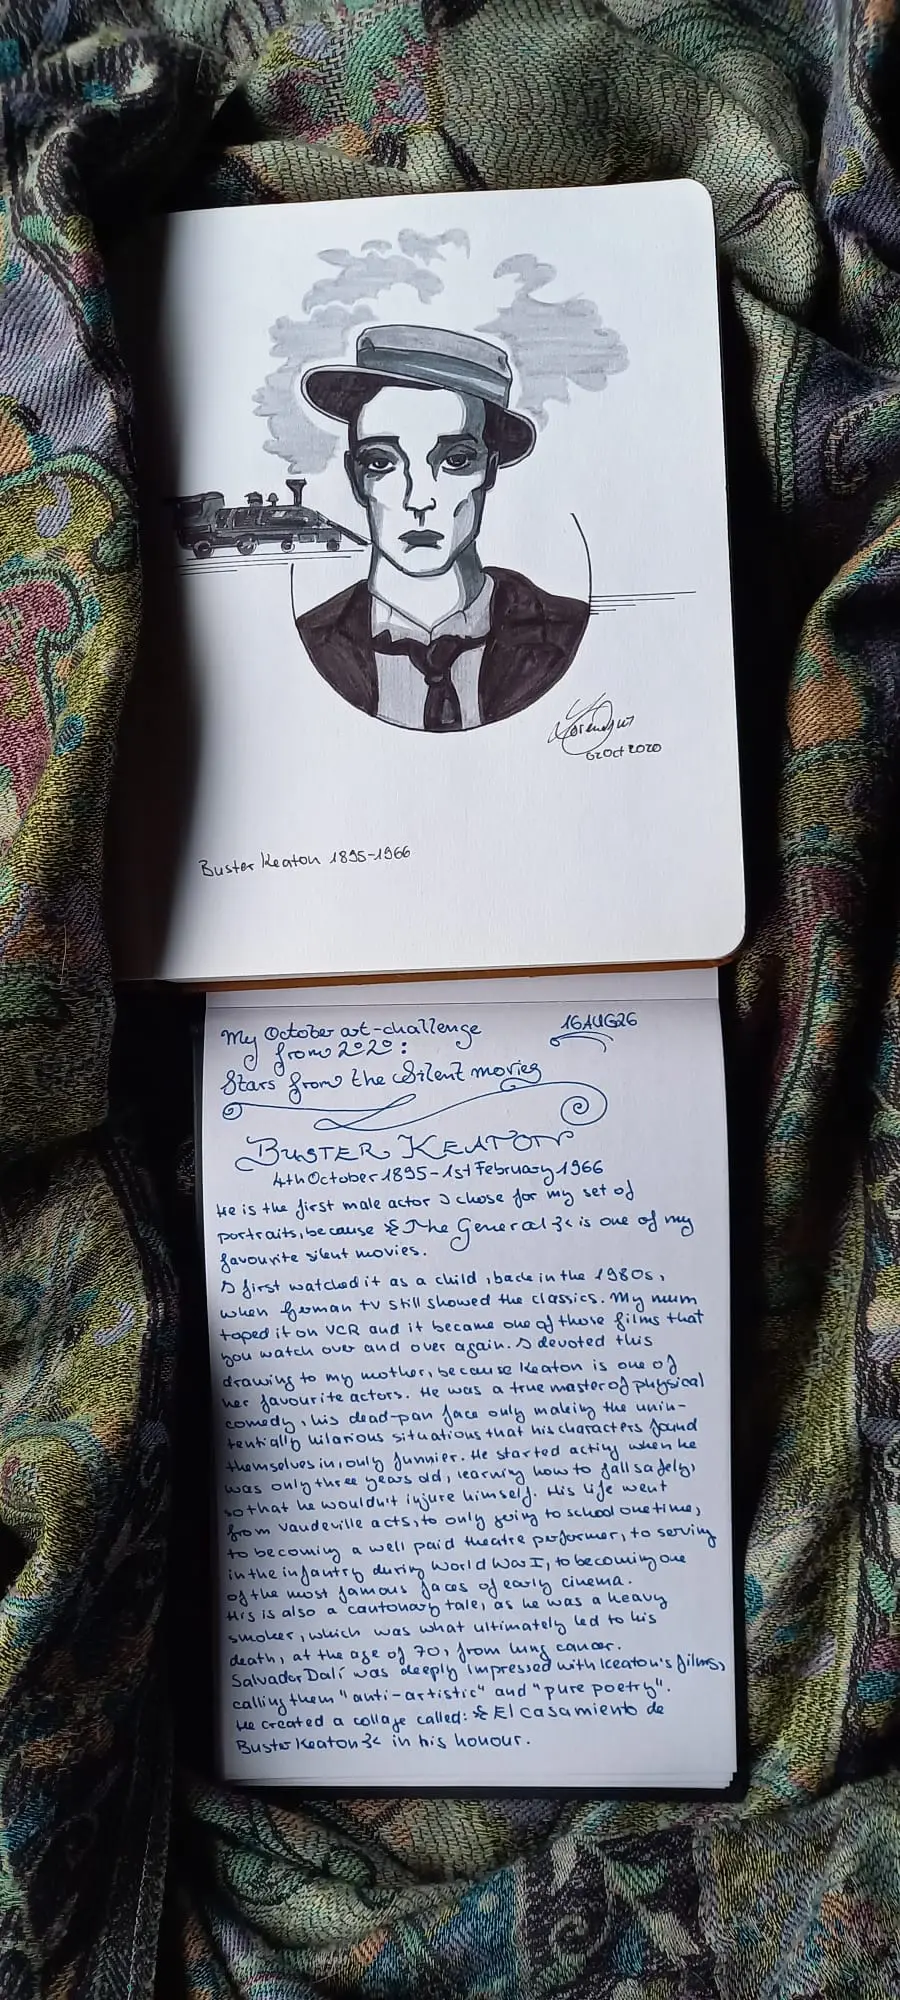 02Oct2020
Buster Keaton 1895-1966
My October art-challenge
from 2020:
16AUG26
Stars from the Silent movies
BUSTER KEATON
4th October 1895-1st February 1966
He is the first male actor I chose for my set of
portraits, because »The General« is one of my
favourite silent movies.
I first watched it as a child, back in the 1980s,
when German TV still showed the classics. My mum
taped it on VCR and it became one of those films that
you watch over and over again. I devoted this
drawing to my mother, because Keaton is one of
her favourite actors. He was a true master of physical
comedy, his dead-pan face only making the unin-
tentially hilarious situations that his characters found
themselves in, only funnier. He started acting when he
was only three years old, learning how to fall safely,
so that he wouldn't injure himself. His life went
from Vaudeville acts, to only going to school one time,
to becoming a well paid theatre performer, to serving
in the infantry during World War I, to becoming one
of the most famous faces of early cinema.
His is also a cautonary tale, as he was a heavy
smoker, which was what ultimately led to his
death, at the age of 70, from lung cancer.
Salvador Dalí was deeply impressed with Keaton's films,
calling them "anti-artistic" and "pure poetry".
He created a collage called: »El casamiento de
Buster Keaton« in his honour.